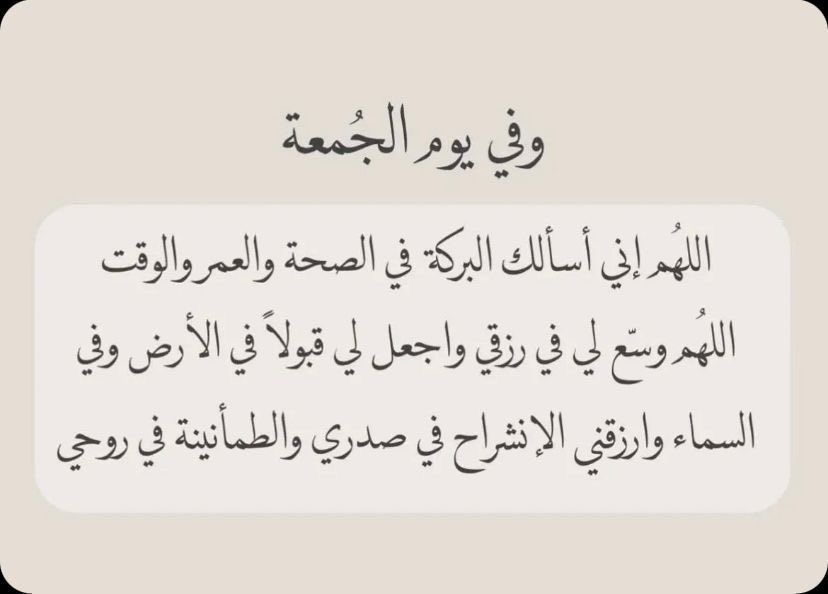 وفي يوم الجُمعة
اللهُم إني أسألك البركة في الصحة والعمر والوقت
اللهُم وسّع لي في رزقي واجعل لي قبولاً في الأرض وفي
السماء وارزقني الإنشراح في صدري والطمأنينة في روحي